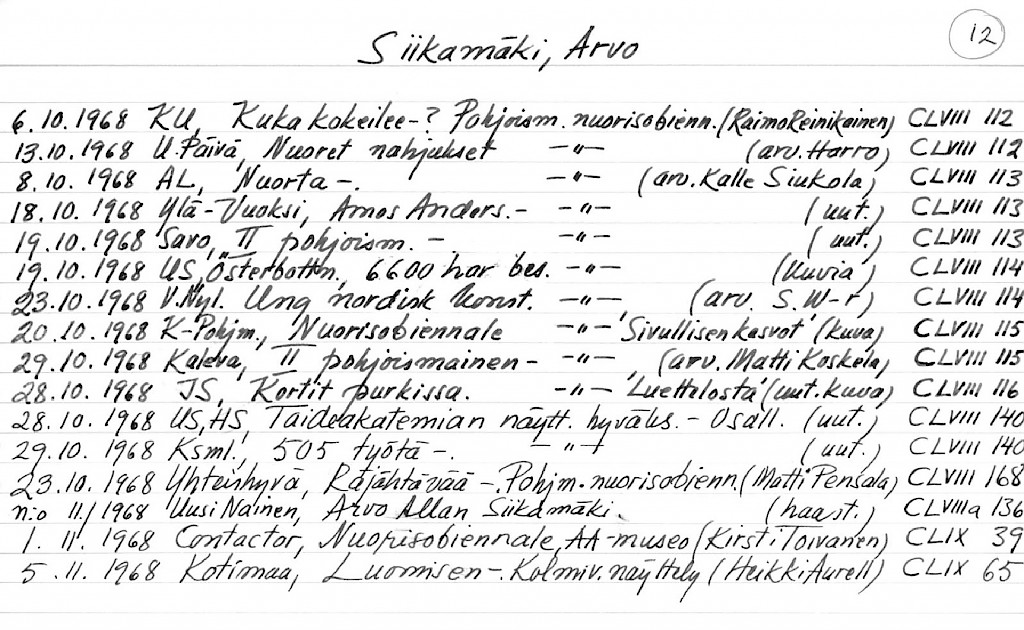 12
Siikamäki, Arvo
6.10.1968 KU, Kuka kokeilee-? Pohjoism. nuorisobienn. (Raimo Reinikainen) CLVIII 112
13.10.1968 U.Päivä, Nuoret nahjukset -"- (arv. Harro) CLVIII 112
8.10.1968 AL, Nuorta-. -"- (arv. Kalle Siukola) CLVIII 113
18.10.1968 Ylä-Vuoksi, Amos Anders.- -"- (uut.) CLVIII 113
19.10.1968 Savo, II pohjoism. - -"- (uut.) CLVIII 113
19.10.1968 US, Österbottn., 6600 har bes. -"- (kuvia) CLVIII 114
23.10.1968 V.Nyl. Ung nordisk konst. -"- (arv. S.W-r) CLVIII 114
20.10.1968 K-Pohjm., Nuorisobiennale -"- 'Sivullisen kasvot' (kuva) CLVIII 115
29.10.1968 Kaleva, II pohjoismainen - -"- (arv. Matti Koskela) CLVIII 115
28.10.1968 JS, Kortit purkissa. -"- 'Luettelosta' (uut. kuva) CLVIII 116
28.10.1968 US, HS, Taideakatemian näytt. hyväks.- Osall. (uut.) CLVIII 140
29.10.1968 Ksml., 505 työtä -. -"- (uut.) CLVIII 140
23.10.1968 Yhteishyvä, Räjähtävää -. Pohjm. nuorisobienn. (Matti Pensala) CLVIII 168
n:o 11/1968 Uusi Nainen, Arvo Allan Siikamäki. (haast.) CLVIIIa 136
1.11.1968 Contactor, Nuorisobiennale, AA-museo (Kirsti Toivanen) CLIX 39
5.11.1968 Kotimaa, Luomisen-. Kolmiv. näyttely (Heikki Aurell) CLIX 65